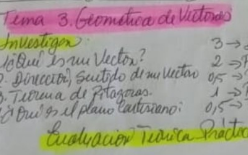 Tema 3. Geometrica de Vectores
Investigar: 3 →
¿Qué es un Vector? 2 →
2. Dirección, Sentido de un Vector 0,5 →
3. Teorema de Pitagoras. 1 →
¿Qué es el plano Cartesiano? 0,5 →
Evaluación Teórica Práctica